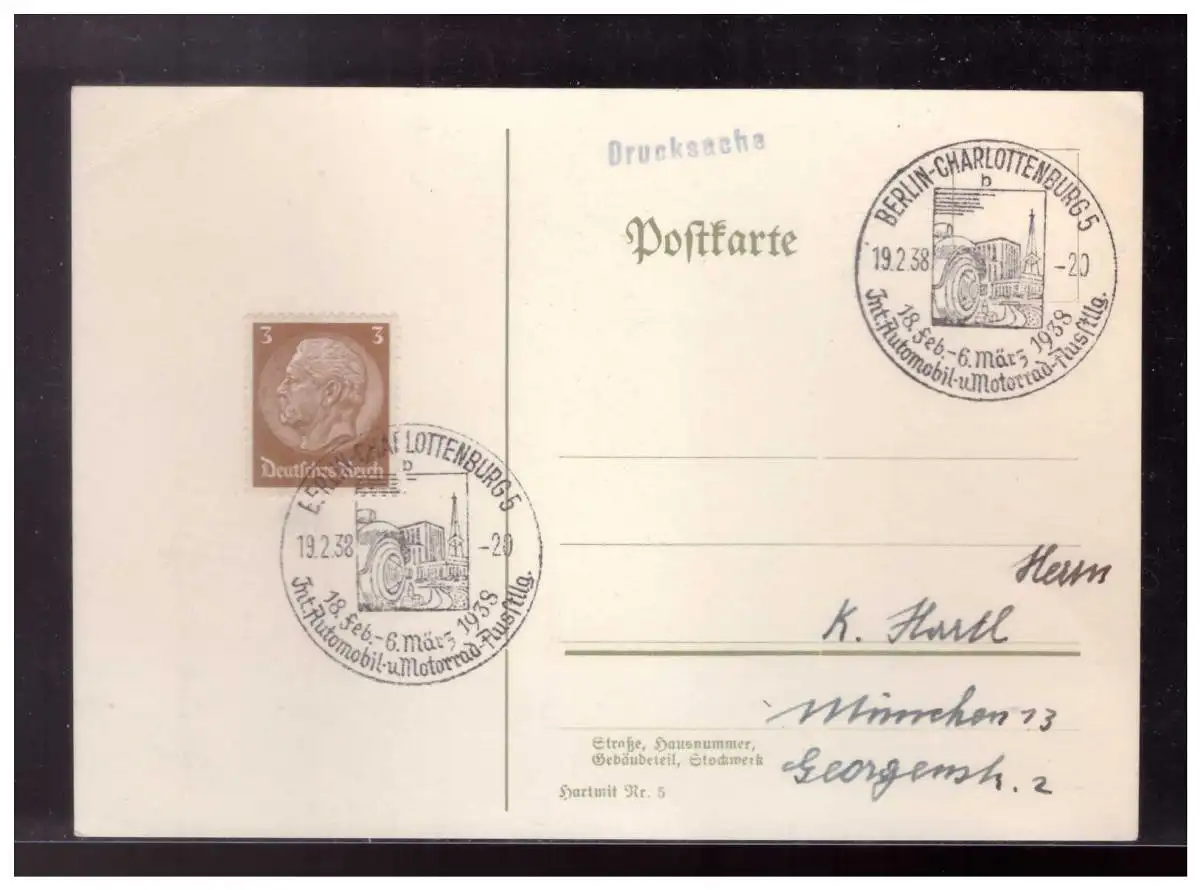 Drucksache
Postkarte
BERLIN-CHARLOTTENBURG 5
b
19.2.38 -20
18. Feb.-6. März 1938
Int. Automobil-u Motorrad-Ausstllg.
3 3
Deutsches Reich
BERLIN-CHARLOTTENBURG 5
b
19.2.38 -20
18. Feb.-6. März 1938
Int. Automobil-u Motorrad-Ausstllg.
Herrn
K. Hartl
München 13
Georgenstr. 2
Straße, Hausnummer,
Gebäudeteil, Stockwerk
Hartmit Nr. 5